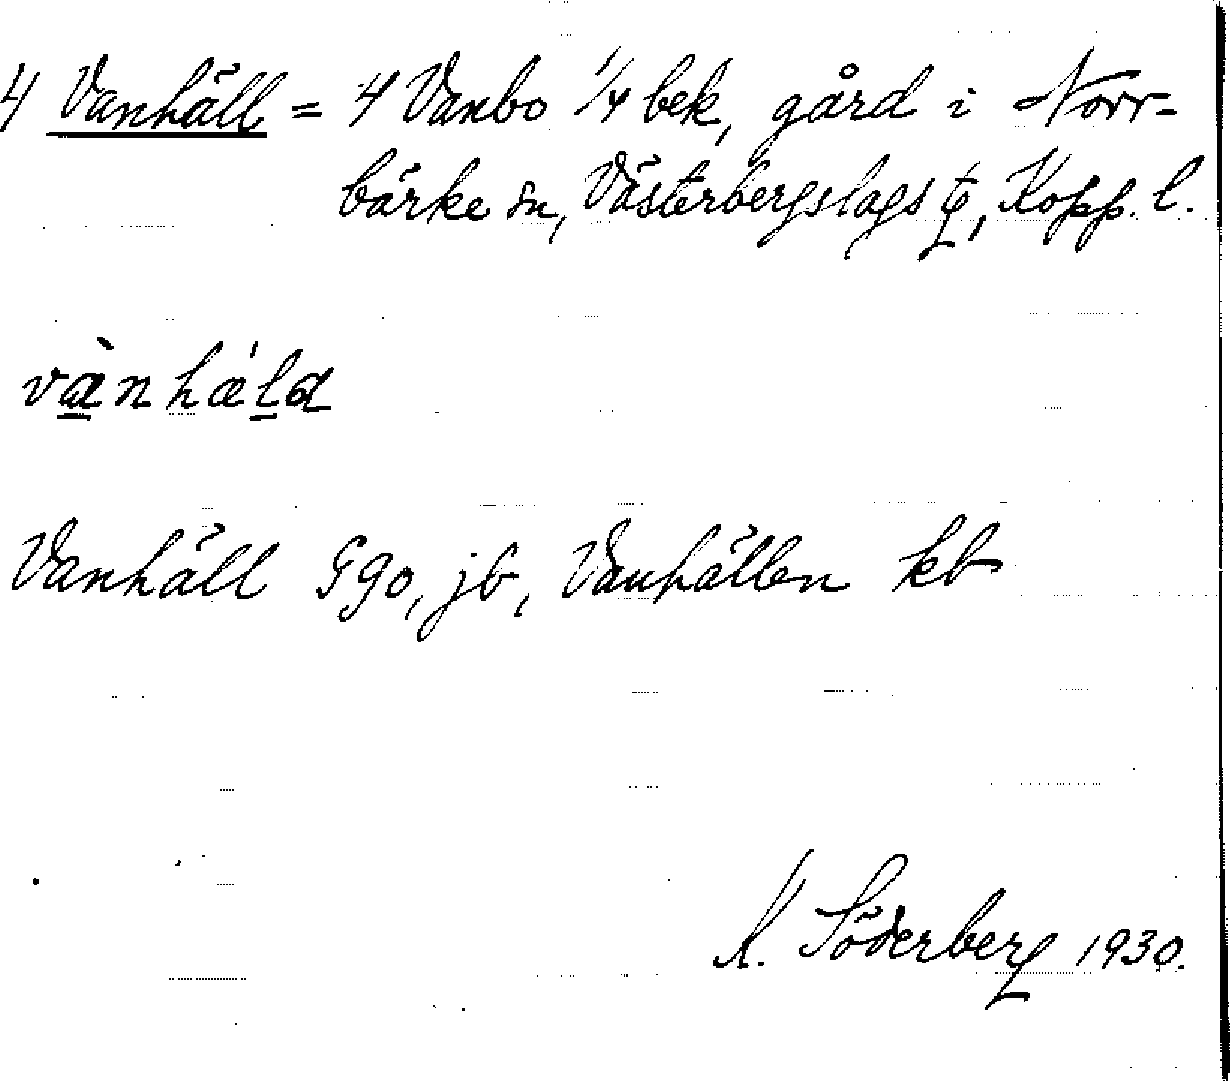 4 Vanhäll = 4 Vanbo 1/4 bek, gård i Norr-
bärke sn, Västerbergslags Kopp. l.
Vanhäll Ggo, jb, Vanhällen kb
K. Söderberg 1930.